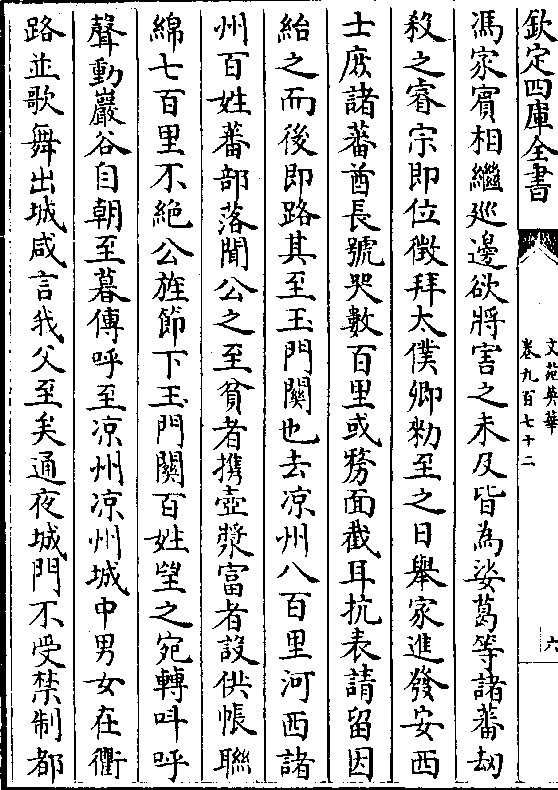 欽定四庫全書
文苑英華
卷九百七十二
六
馮家賓相繼廵邊欲將害之未及皆為娑葛等諸蕃刼
殺之睿宗即位徴拜太僕卿勑至之日舉家進發安西
士庶諸蕃酋長號哭數百里或剺面截耳抗表請留因
紿之而後即路其至玉門關也去凉州八百里河西諸
州百姓蕃部落聞公之至貧者携壺漿富者設供帳聯
綿七百里不絶公旌節下玉門關百姓望之宛轉呌呼
聲動巖谷自朝至暮傳呼至凉州凉州城中男女在衢
路並歌舞出城咸言我父至矣通夜城門不受禁制都